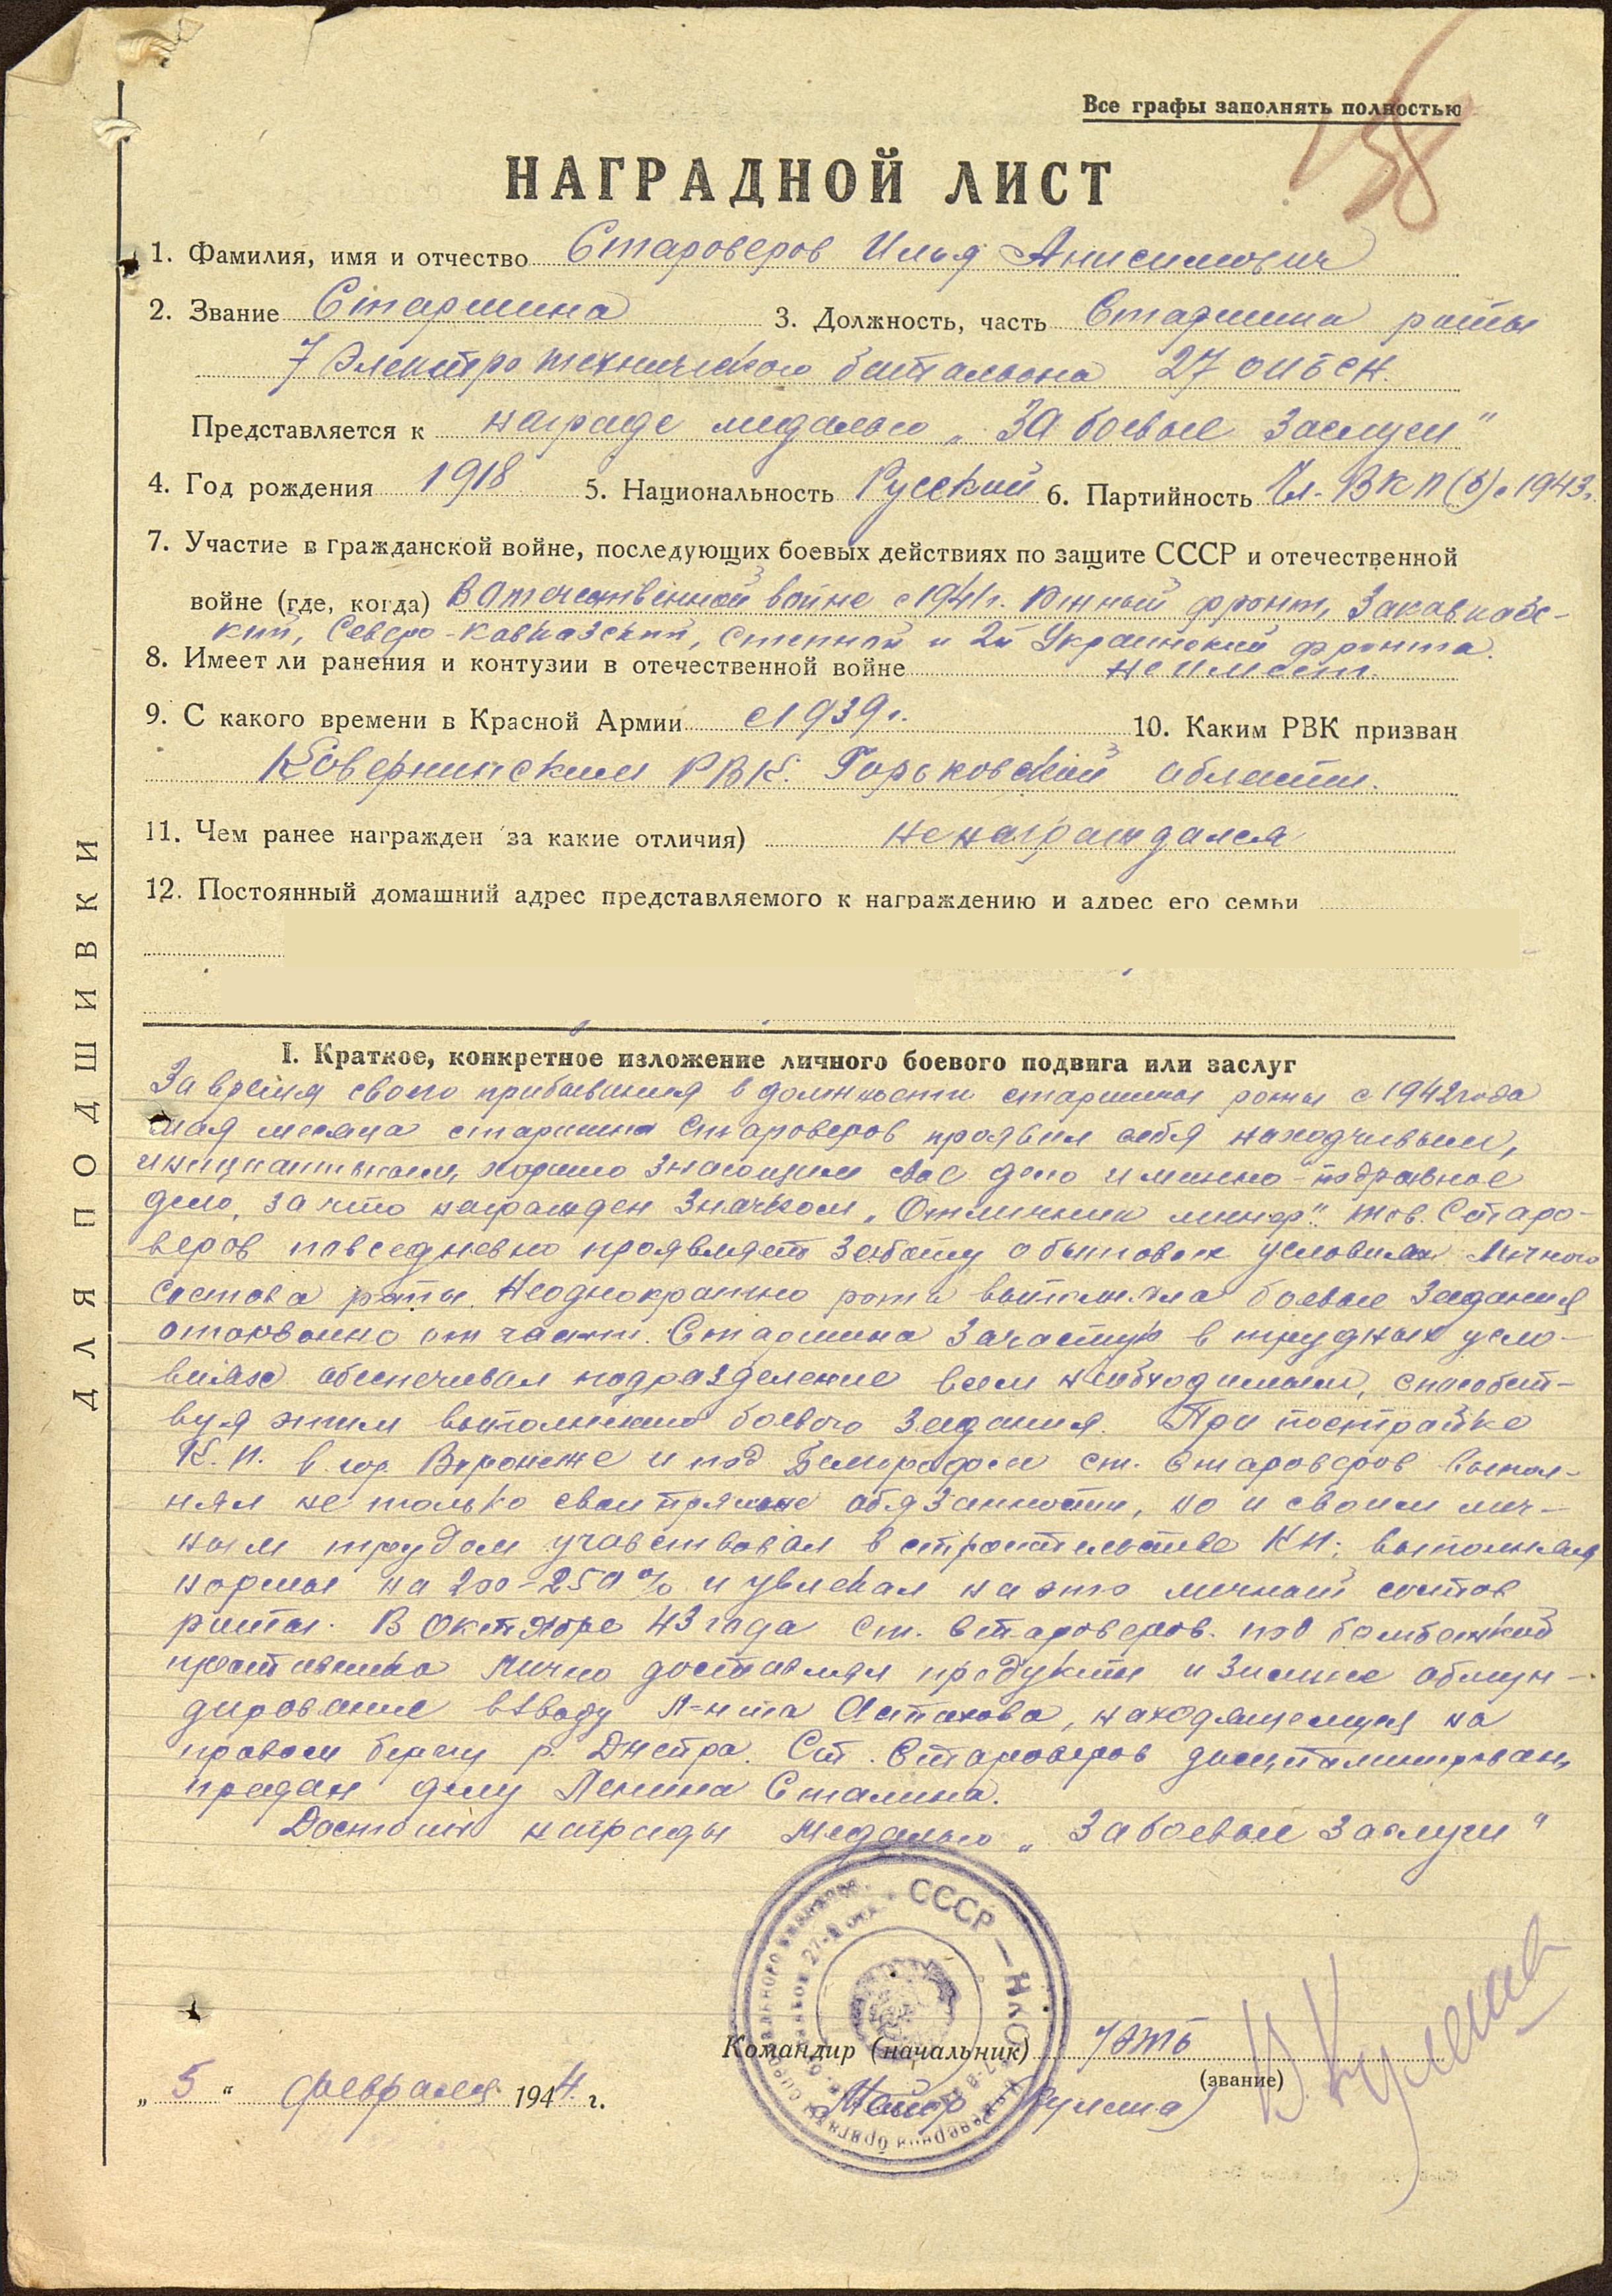 Все графы заполнять полностью
158
НАГРАДНОЙ ЛИСТ
1. Фамилия, имя и отчество Староверов Илья Анисимович
2. Звание Старшина 3. Должность, часть Старшина роты
7 Электротехнического батальона 27 опбсн.
Представляется к награде медалью „За боевые заслуги"
4. Год рождения 1918 5. Национальность Русский 6. Партийность Чл. ВКП(б) с 1943г.
7. Участие в гражданской войне, последующих боевых действиях по защите СССР и отечественной
войне (где, когда) В Отечественной войне с 1941г. Южный фронт, Закавказс-
кий, Северо-Кавказский, Степной и 2й Украинский фронта.
8. Имеет ли ранения и контузии в отечественной войне не имеет.
9. С какого времени в Красной Армии с 1939г. 10. Каким РВК призван
Ковернинским РВК. Горьковской области.
11. Чем ранее награжден за какие отличия) не награждался
12. Постоянный домашний адрес представляемого к награждению и адрес его семьи
I. Краткое, конкретное изложение личного боевого подвига или заслуг
За время своего прибывания в должности старшины роты с 1942 года
мая месяца старшина Староверов проявил себя находчивым,
инициативным, хорошо знающим свое дело и минно-подрывное
дело, за что награжден значком „Отличник минер". тов. Старо-
веров повседневно проявляет заботу о бытовых условиях личного
состава роты. Неоднократно рота выполняла боевые задания
оторванно от части. Старшина зачастую в трудных усло-
виях обеспечивал подразделение всем необходимым, способст-
вуя этим выполнению боевого задания. При постройке
К.П. в гор. Воронеже и под Белгородом ст. Староверов выпол-
нял не только свои прямые обязанности, но и своим лич-
ным трудом учавствовал в строительстве КП, выполняя
нормы на 200-250% и увлекал на это личный состав
роты. В Октябре 43 года ст. Староверов под бомбежкой
противника лично доставлял продукты и зимнее обмун-
дирование взводу л-нта Астахова, находящемуся на
правом берегу р. Днепра. Ст. Староверов дисциплинирован,
предан делу Ленина Сталина.
Достоин награды Медалью „За боевые заслуги"
СССР — НКО
Командир (начальник) 7 ЭТБ
(звание)
Майор
„5" февраля 1944 г.
ДЛЯ ПОДШИВКИ